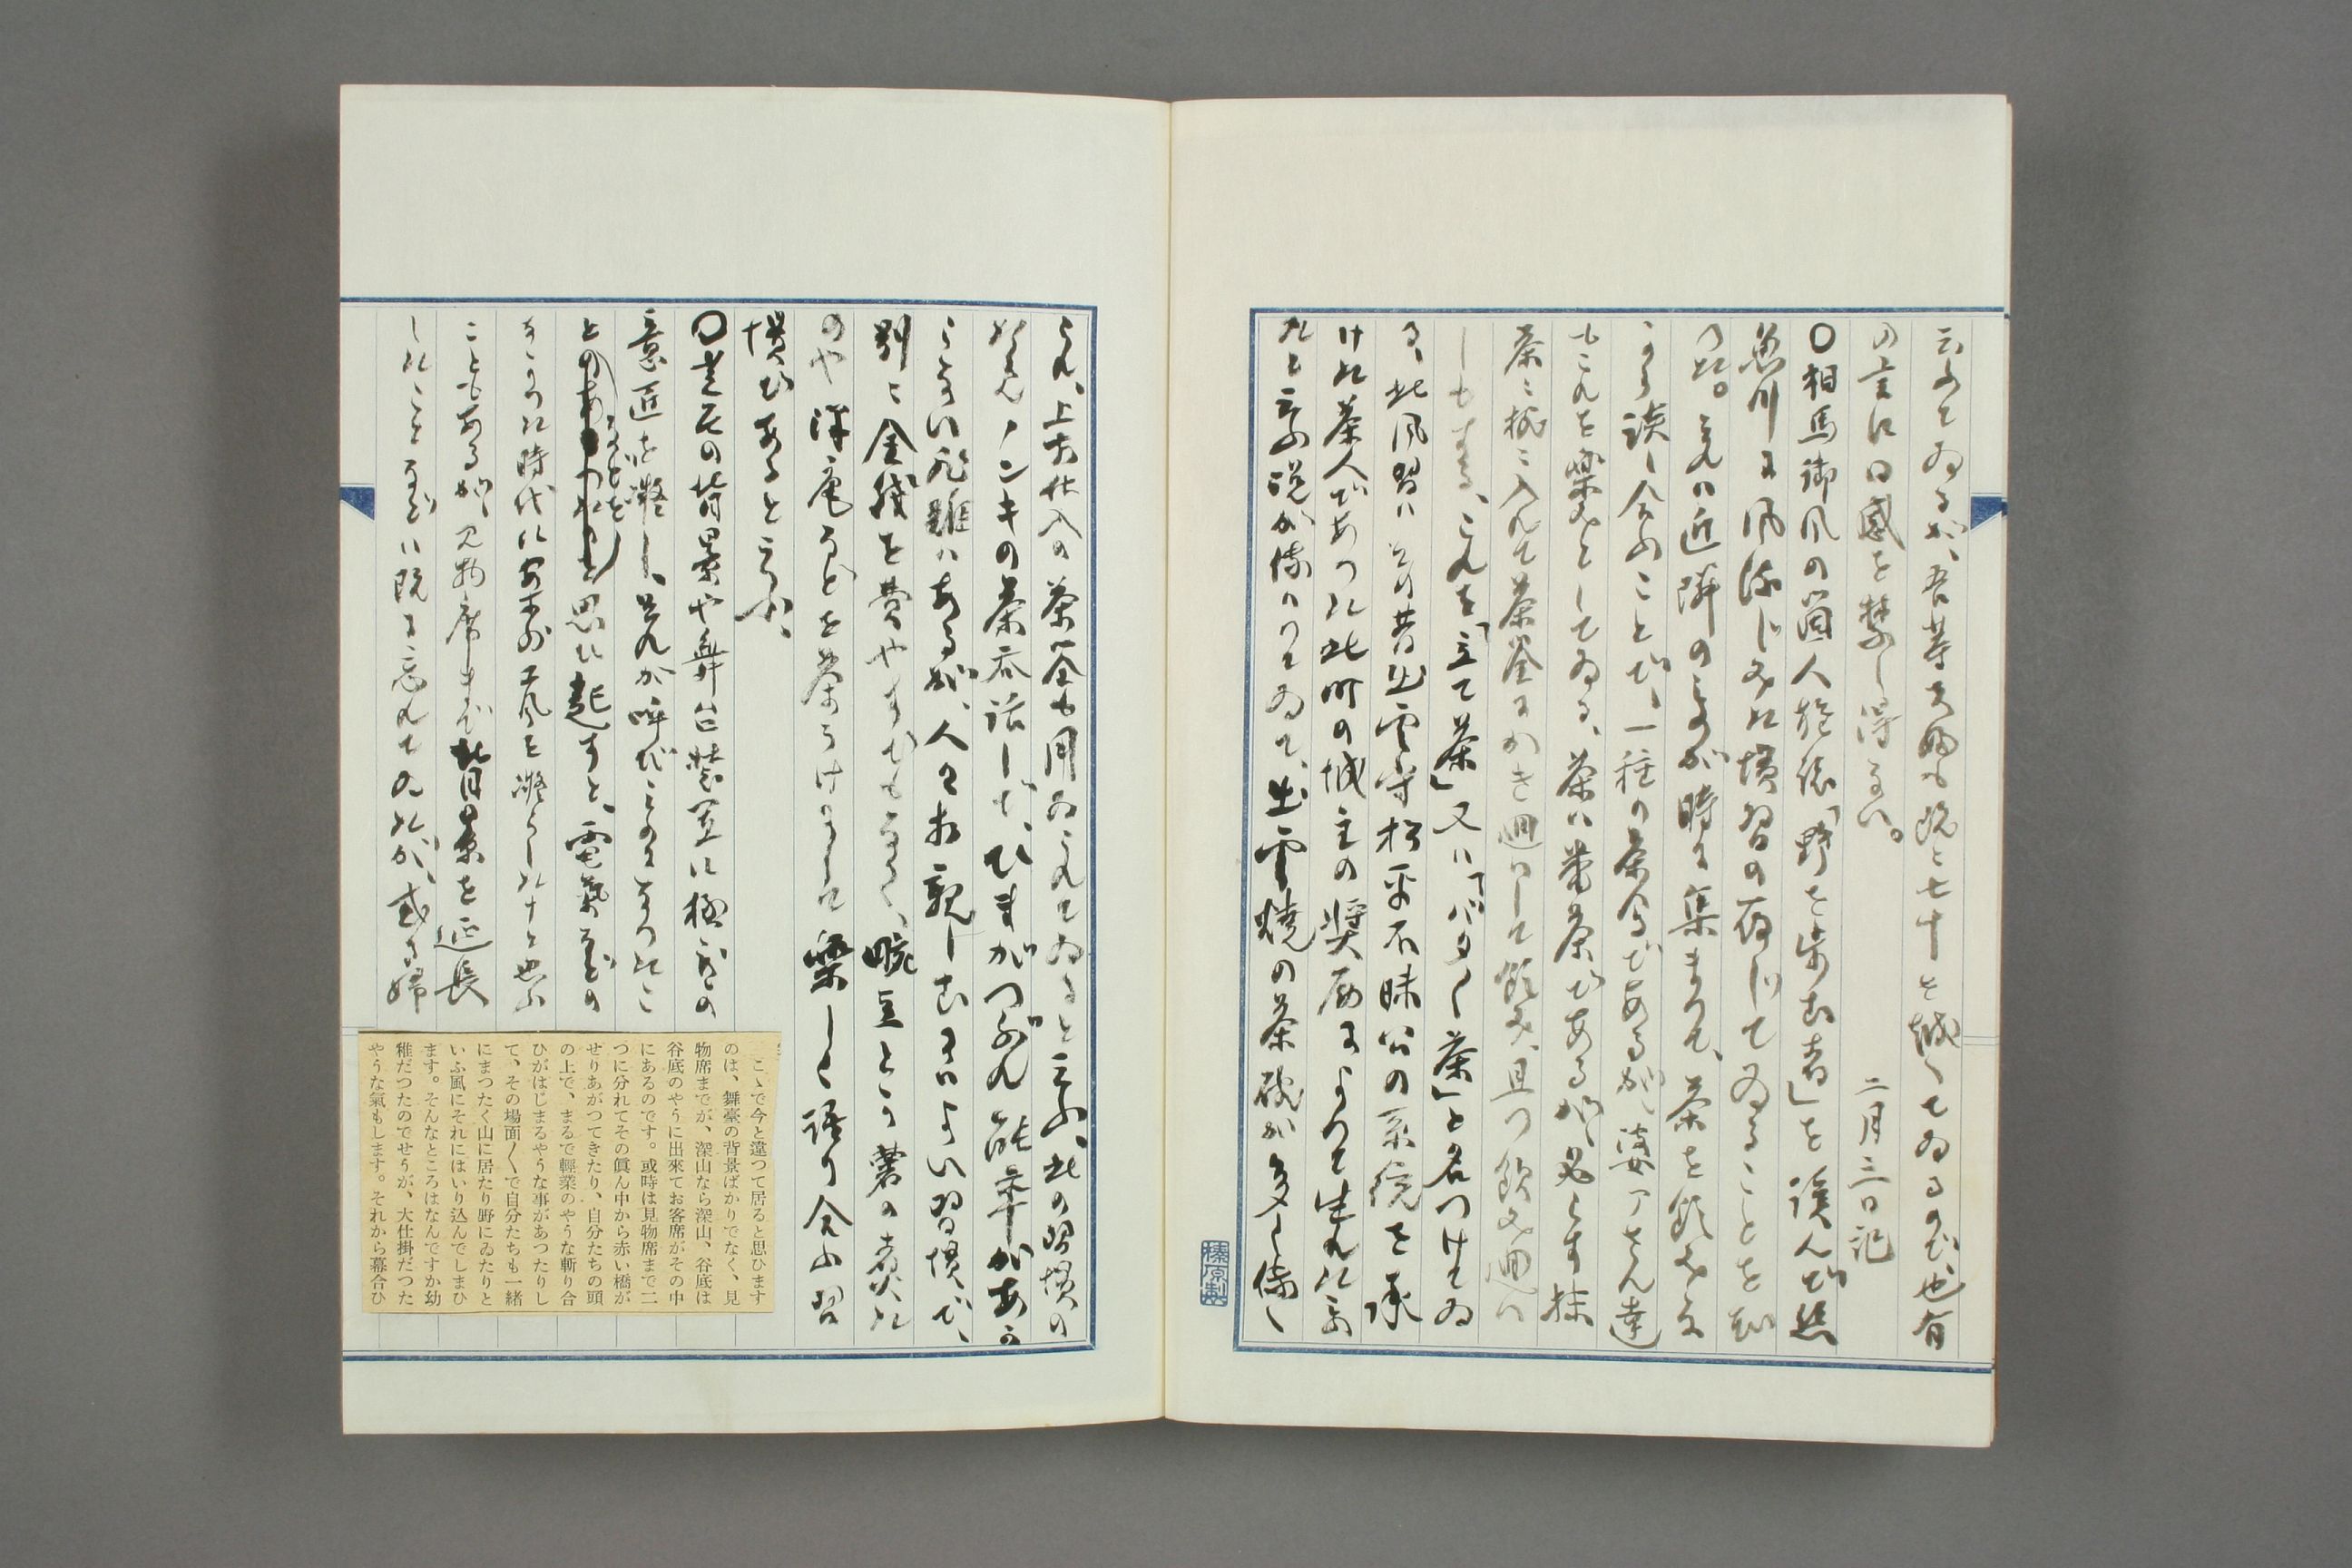 云ふてゐるが、吾等夫婦も既と七十を越してゐるので也有
の言に同感を禁し得ない。 二月三日記
〇相馬御風の箇人雑誌「野を歩む者」を読んで糸
魚川に風流じみた慣習の存じてゐることを知
つた。それは近隣のものが時に集まつて、茶を飲みな
がら談し合ふことで、一種の茶会であるが、婆アさん達
もこれを楽みとしてゐる、茶は葉茶であるが、必らす抹
茶ニ椀ニ入れて茶筌にかき廻はして飲み、且つ飲み廻は
しもする、これを「立て茶」又は「バタ〱茶」と名つけてゐ
る、此風習は其昔出雲守松平不昧公の系統を承
けた茶人であつた此町の城主の奨励によつて生れた
れと云ふ説が傳はつてゐて、出雲焼の茶碗が多く傳
榛原製
られ、上方仕入の茶筌も用ゐられてゐると云ふ、此の習慣の
ノンキの茶呑話しで、ひまがつぶれ能率があが
らない非難はあるが、人と相親しむにはよい習慣で、
別ニ金銭を費やすでもなく、豌豆とか薯の煮た
のや沢庵などを茶うけにして楽しく語り合ふ習
慣であると云ふ、
〇芝居の背景や舞台装置に極めての
意匠を凝し、是れが呼びものになつたこ
となどを思ひ起すと、電気などの
なかつた時代に案外工風を凝らした、と思ふ
こともあるが、見物席まで背景を延長
したことなどは既に忘れてゐたが、或る婦
こゝで今と違つて居ると思ひます
のは、舞臺の背景ばかりでなく、見
物席までが、深山なら深山、谷底は
谷底のやうに出來てお客席がその中
にあるのです。或時は見物席まで二
つに分れてその眞ん中から赤い橋が
せりあがつてきたり、自分たちの頭
の上で、まるで輕業のやうな斬り合
ひがはじまるやうな事があつたりし
て、その場面〱で自分たちも一緒
にまつたく山に居たり野にゐたりと
いふ風にそれにはいり込んでしまひ
ます。そんなところはなんですか幼
稚だつたのでせうが、大仕掛だつた
やうな氣もします。それから幕合ひ